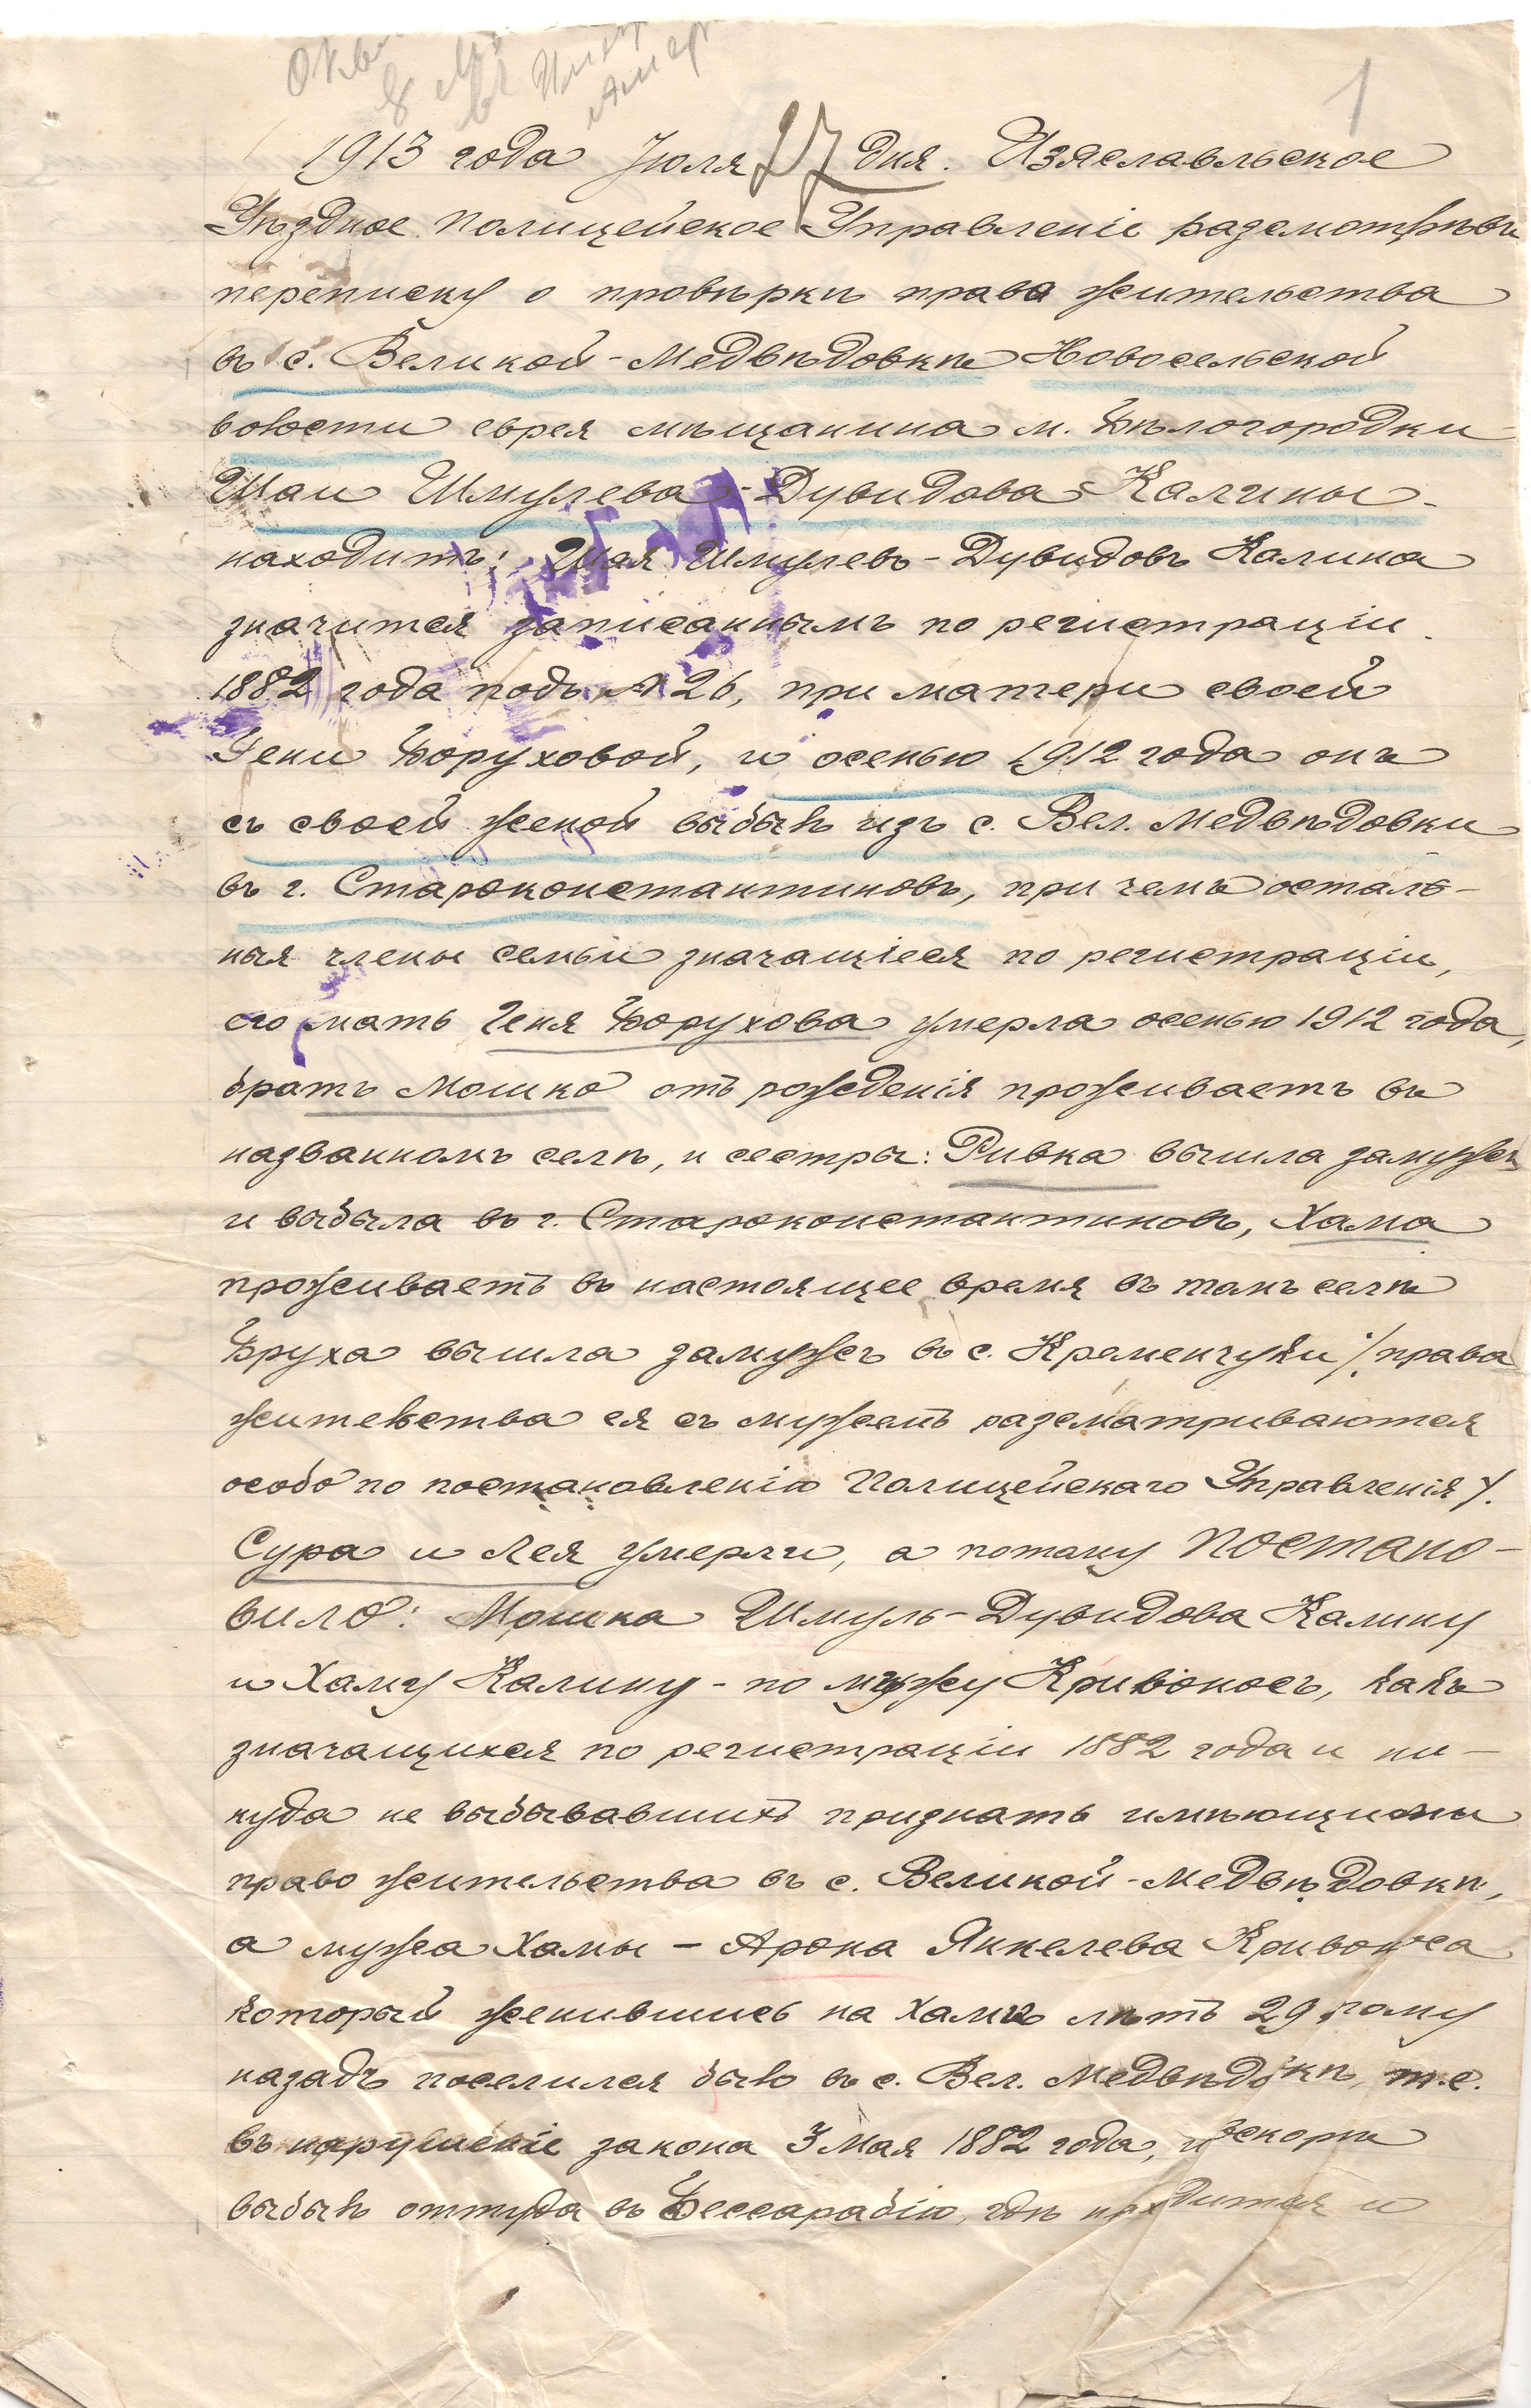 1
1913 года Іюля 27 дня. Изяславльское
Уѣздное Полицейское Управленіе разсмотрѣвъ
переписку о провѣркѣ права жительства
въ с. Великой-Медвѣдовкѣ Новосельской
волости еврея мѣщанина м. Бѣлогородки
Шаи Шмулева-Дувидова Калины
находитъ: Шая Шмулевъ-Дувидовъ Калина
значится записаннымъ по регистраціи
1882 года подъ № 26, при матери своей
Гени Боруховой, и осенью 1912 года онъ
съ своей женой выбылъ изъ с. Вел. Медвѣдовки
въ г. Староконстантиновъ, при чемъ осталь-
ныя члены семьи значащіеся по регистраціи,
его мать Геня Борухова умерла осенью 1912 года,
братъ Мошко отъ рожденія проживаетъ въ
названномъ селѣ, и сестры: Ривка вышла замужъ
и выбыла въ г. Староконстантиновъ, Хама
проживаетъ въ настоящее время въ томъ селѣ
Бруха вышла замужъ въ с. Кременчуки /: права
жительства ея съ мужемъ разсматриваются
особо по постановленію Полицейскаго Управленія /.
Сура и Лея умерли, а потому постано-
вило: Мошка Шмуль-Дувидова Калину
и Хаму Калину - по мужу Кривоносъ, какъ
значащихся по регистраціи 1882 года и ни-
куда не выбывавшихъ признать имѣющими
право жительства въ с. Великой-Медвѣдовкѣ,
а мужа Хамы - Арона Янкелева Кривоноса
который женившись на Хамѣ лѣтъ 29 тому
назадъ поселился было въ с. Вел. Медвѣдовкѣ, т.е.
въ нарушеніе закона 3 Мая 1882 года, и вскорѣ
выбылъ оттуда въ Бессарабію, гдѣ находится и